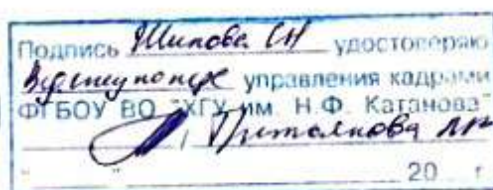 Подпись Шипова СН удостоверяю
управления кадрами
ФГБОУ ВО "ХГУ им. Н.Ф. Катанова"
20 г